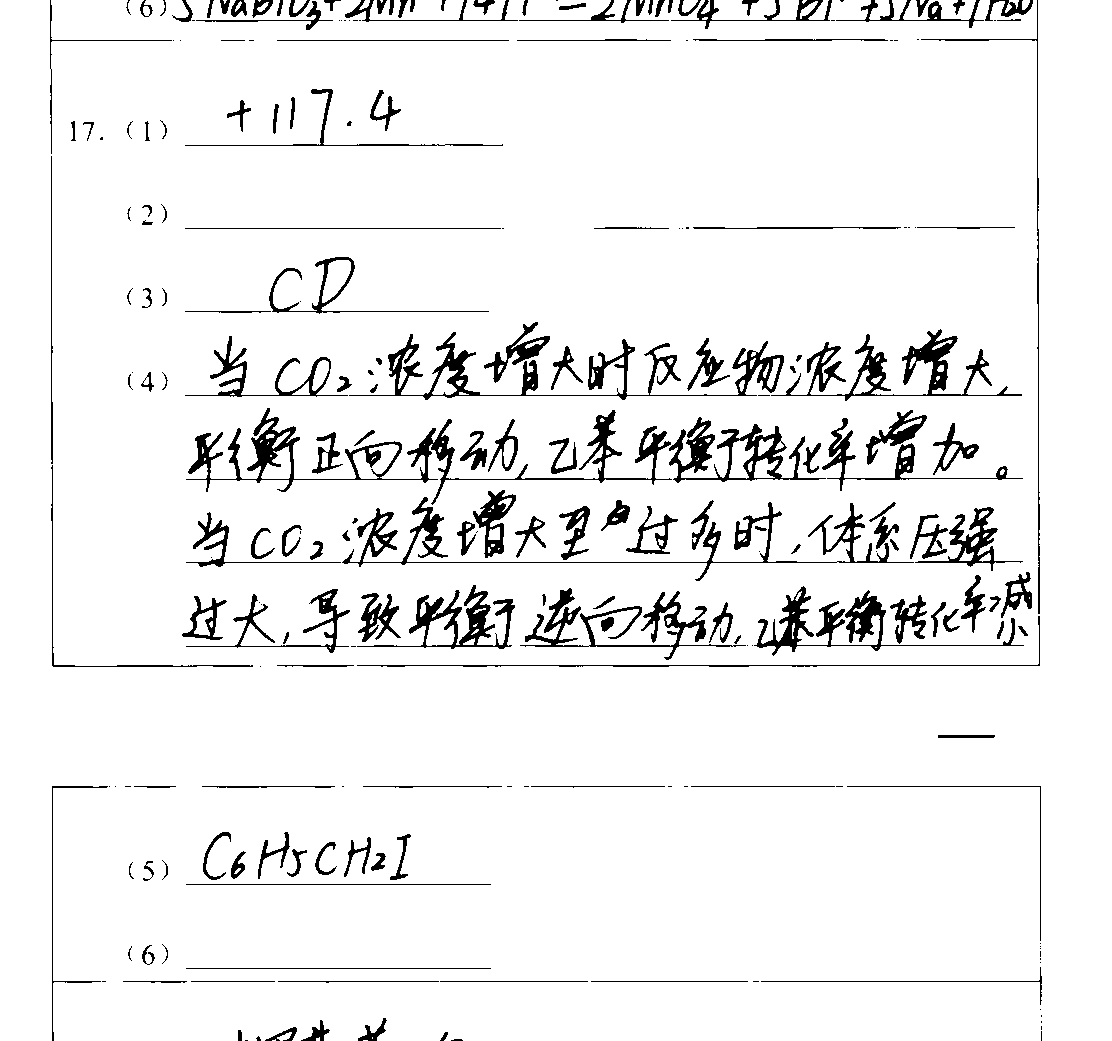 (6) 5NaBiO₃+2Mn + 14H = 2MnO₄ +5Bi +5Na+7H₂O
17. (1) +117.4
(2)
(3) CD
(4) 当CO₂浓度增大时反应物浓度增大,
平衡正向移动,乙苯平衡转化率增加。
当CO₂浓度增大至过多时,体系压强
过大,导致平衡逆向移动,乙苯平衡转化率减小
(5) C₆H₅CH₂I
(6)